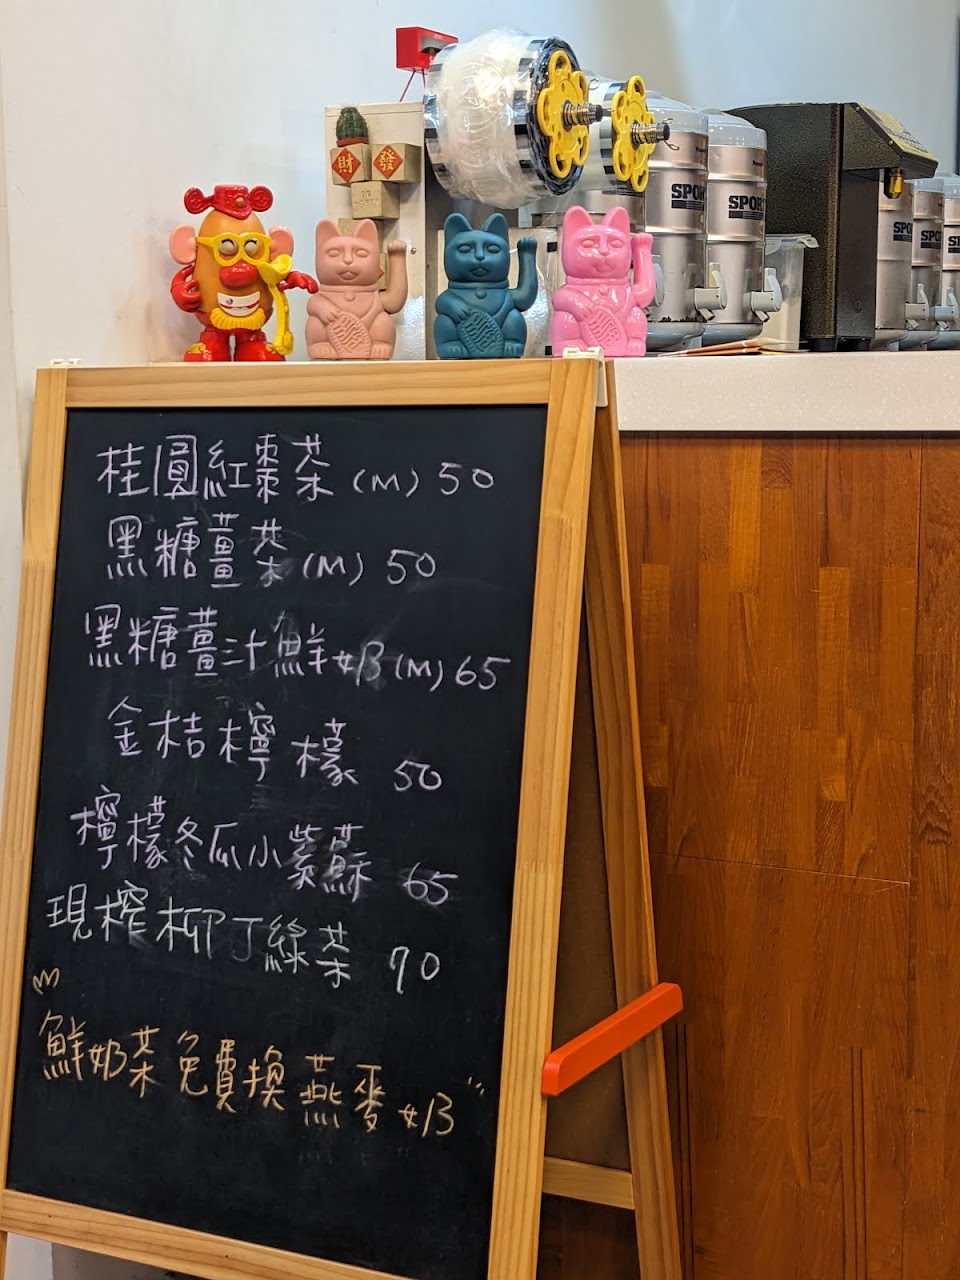 財 發
SPOR
SPOR
SPO
SPO
SPO
桂圓紅棗茶(M) 50
黑糖薑茶(M) 50
黑糖薑汁鮮奶(M) 65
金桔檸檬 50
檸檬冬瓜小紫蘇 65
現榨柳丁綠茶 90
鮮奶茶免費換燕麥奶